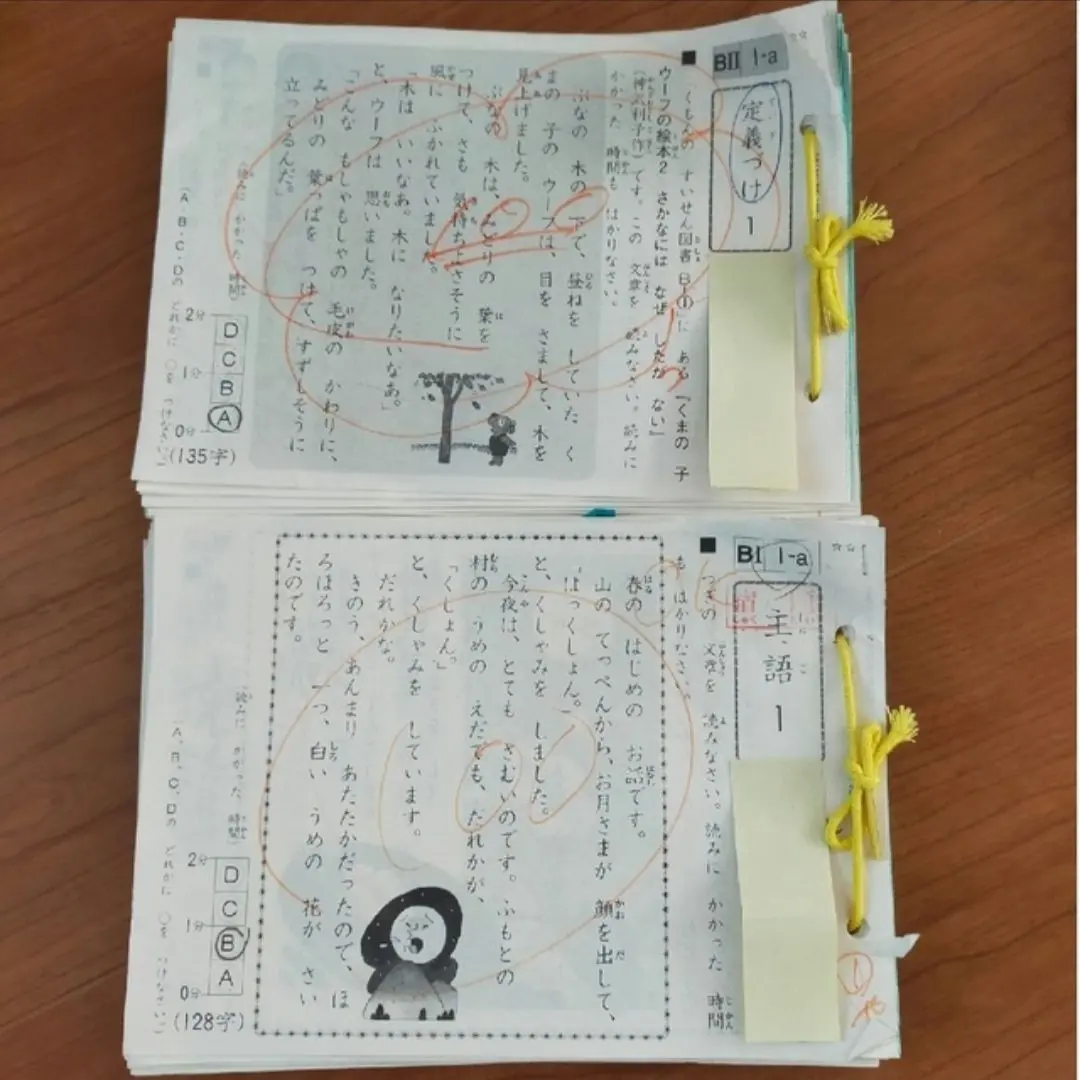 BII 1-a
定義づけ
1
■「くもんの すいせん図書 BⅠ①に ある「くまの 子
ウーフの絵本2 さかなには なぜ したが ない」
(神沢利子作)です。この 文章を 読みなさい。読みに
かかった 時間も はかりなさい。
ぶなの 木の 下で、昼ねを していた く
まの 子の ウーフは、目を さまして、木を
見上げました。
ぶなの 木は、みどりの 葉を
つけて、さも 気持ちよさそうに
風に ふかれていました。
「木は いいなあ。木に なりたいなあ。」
と、ウーフは 思いました。
「こんな もしゃもしゃの 毛皮の かわりに、
みどりの 葉っぱを つけて、すずしそうに
立ってるんだ。」
(読みに かかった 時間)
2分
1分
0分
D
C
B
A
(A・B・C・Dの どれかに ○を つけなさい。)
(135字)
BI 1-a
主語
1
■つぎの 文章を 読みなさい。読みに かかった 時間
も はかりなさい。
春の はじめの お話です。
山の てっぺんから、お月さまが 顔を出して、
「はっくしょん。」
と、くしゃみを しました。
今夜は、とても さむいのです。ふもとの
村の うめの えだでも、だれかが、
「くしょん。」
と、くしゃみを しています。
だれかな。
きのう、あんまり あたたかだったので、ほ
ろほろっと 一つ、白い うめの 花が さい
たのです。
(読みに かかった 時間)
2分
1分
0分
D
C
B
A
(A・B・C・Dの どれかに ○を つけなさい。)
(128字)